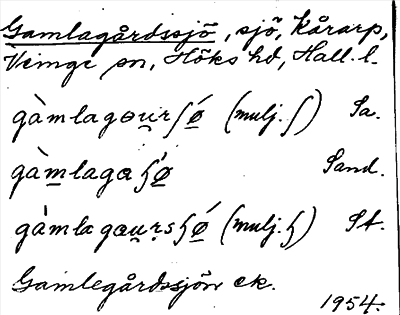 Gamlagårdssjö, sjö, Kårarp,
Veinge sn, Höks hd, Hall. l.
gàmlagɵu̯rʃǿ (mulj. ʃ) Sa.
gàmlagaɧǿ Sand.
gàmlagɵu̯ṛsɧǿ (mulj. ɧ) St.
Gamlegårdssjön ek.
1954.